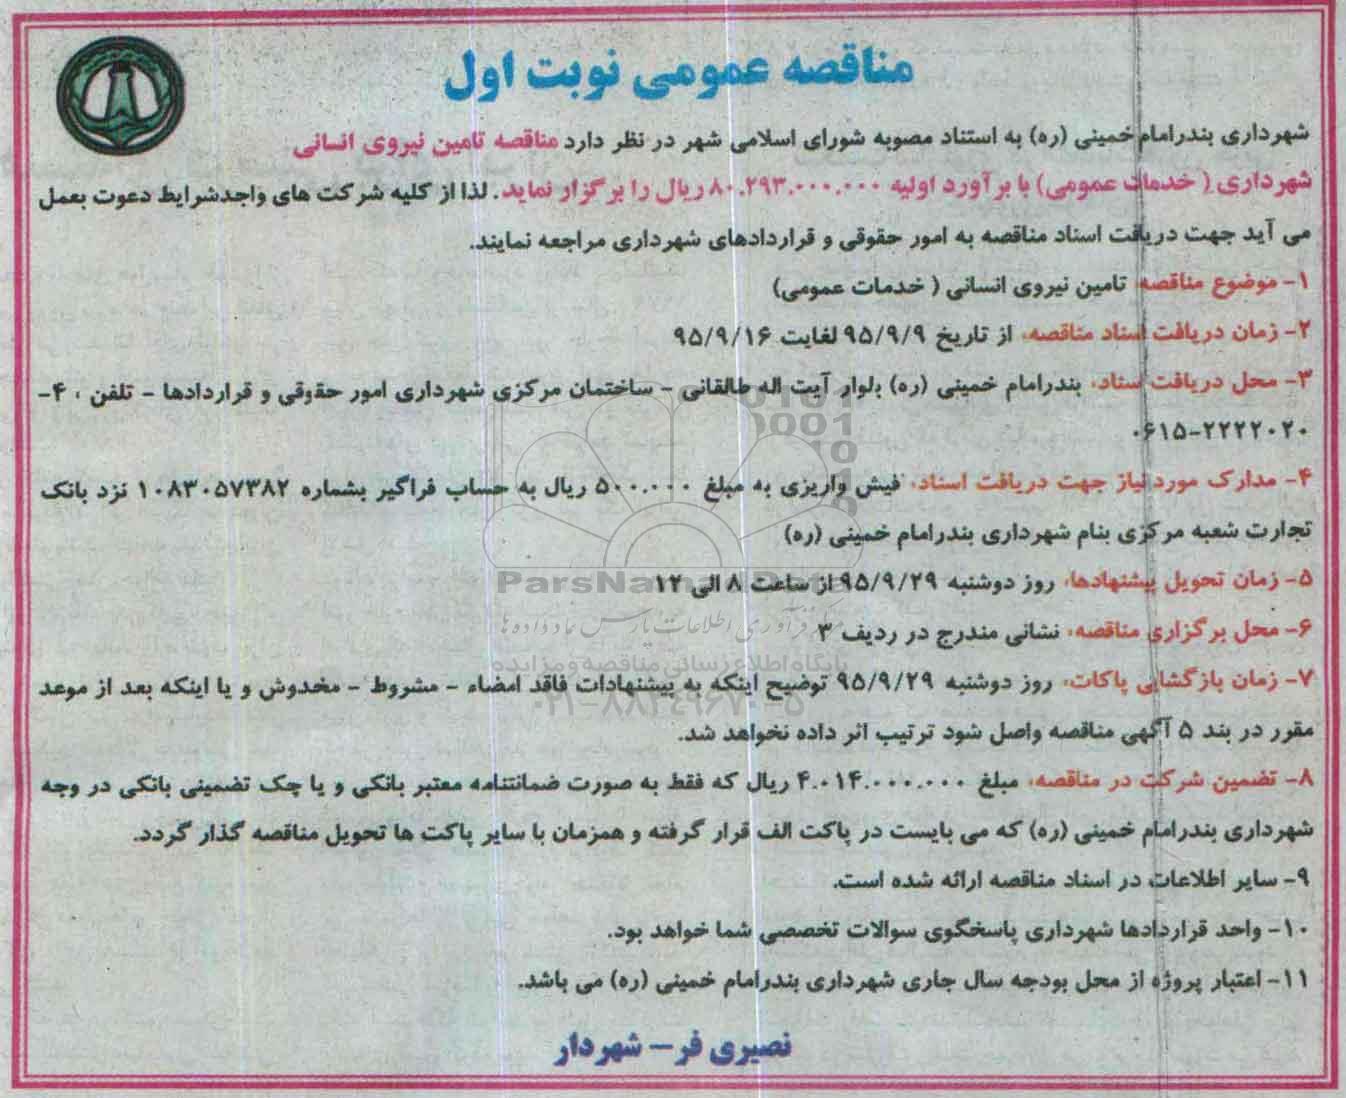 مناقصه عمومی نوبت اول
شهرداری بندرامام خمینی (ره) به استناد مصوبه شورای اسلامی شهر در نظر دارد مناقصه تامین نیروی انسانی
شهرداری ( خدمات عمومی) با برآورد اولیه ۸۰.۲۹۳.۰۰۰.۰۰۰ ریال را برگزار نماید. لذا از کلیه شرکت های واجدشرایط دعوت بعمل
می آید جهت دریافت اسناد مناقصه به امور حقوقی و قراردادهای شهرداری مراجعه نمایند.
۱- موضوع مناقصه: تامین نیروی انسانی ( خدمات عمومی)
۲- زمان دریافت اسناد مناقصه: از تاریخ ۹۵/۹/۹ لغایت ۹۵/۹/۱۶
۳- محل دریافت اسناد: بندرامام خمینی (ره) بلوار آیت اله طالقانی - ساختمان مرکزی شهرداری امور حقوقی و قراردادها - تلفن : ۴-
۰۶۱۵-۲۲۲۲۰۲۰
۴- مدارک مورد نیاز جهت دریافت اسناد: فیش واریزی به مبلغ ۵۰۰.۰۰۰ ریال به حساب فراگیر بشماره ۱۰۸۳۰۵۷۳۸۲ نزد بانک
تجارت شعبه مرکزی بنام شهرداری بندرامام خمینی (ره)
۵- زمان تحویل پیشنهادها: روز دوشنبه ۹۵/۹/۲۹ از ساعت ۸ الی ۱۲
۶- محل برگزاری مناقصه: نشانی مندرج در ردیف ۳
۷- زمان بازگشایی پاکات: روز دوشنبه ۹۵/۹/۲۹ توضیح اینکه به پیشنهادات فاقد امضاء - مشروط - مخدوش و یا اینکه بعد از موعد
مقرر در بند ۵ آگهی مناقصه واصل شود ترتیب اثر داده نخواهد شد.
۸- تضمین شرکت در مناقصه: مبلغ ۴.۰۱۴.۰۰۰.۰۰۰ ریال که فقط به صورت ضمانتنامه معتبر بانکی و یا چک تضمینی بانکی در وجه
شهرداری بندرامام خمینی (ره) که می بایست در پاکت الف قرار گرفته و همزمان با سایر پاکت ها تحویل مناقصه گذار گردد.
۹- سایر اطلاعات در اسناد مناقصه ارائه شده است.
۱۰- واحد قراردادها شهرداری پاسخگوی سوالات تخصصی شما خواهد بود.
۱۱- اعتبار پروژه از محل بودجه سال جاری شهرداری بندرامام خمینی (ره) می باشد.
نصیری فر – شهردار
ParsNamadData
مرکز فرآوری اطلاعات پارس نماد داده ها
پایگاه اطلاع رسانی مناقصه و مزایده
۰۲۱-۸۸۳۴۹۶۷۰-۵